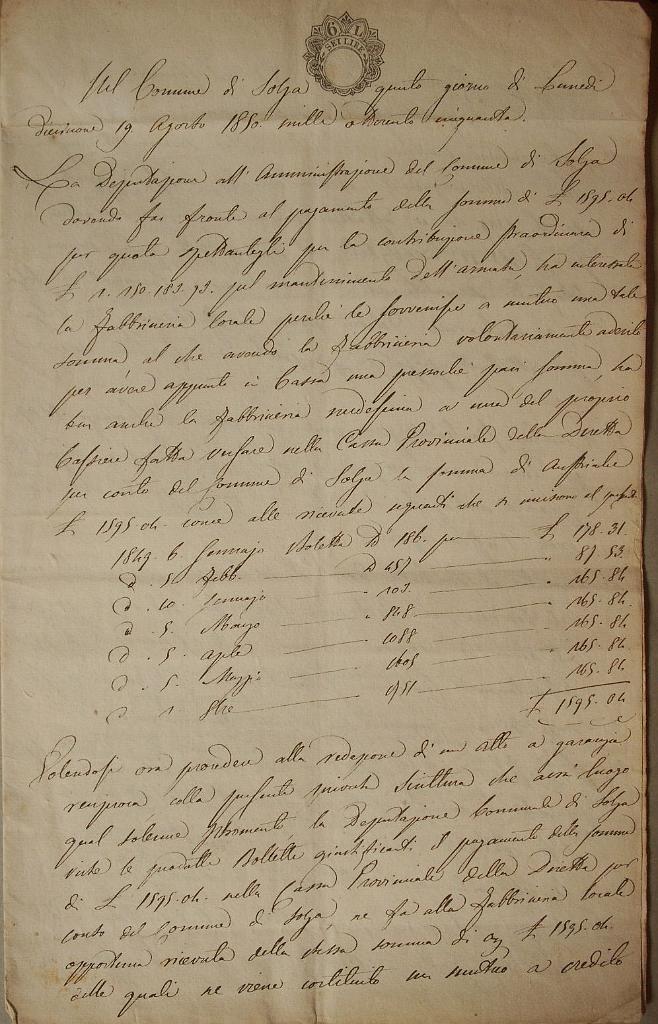 6 L
SEI LIRE
Nel Comune di Solza questo giorno di Lunedì
diecinove 19 Agosto 1850. mille ottocento cinquanta.
La Deputazione all'Amministrazione del Comune di Solza
dovendo far fronte al pagamento della somma di £ 1595.04
per quota spettantegli per la contribuzione straordinaria di
£ 1.150.183.93. pel mantenimento dell'armata, ha interessata
la Fabbriceria locale perchè le sovvenisse a mutuo una tale
somma al che avendo la Fabbriceria volontariamente aderito
per avere appunto in Cassa una pressochè pari somma, ha
anche la Fabbriceria medesima a del proprio
Cassiere fatta versare nella Cassa Provinciale della Diretta
per conto del Comune di Solza la somma di Austriache
£ 1595.04. come alle ricevute seguenti che si
1849. 6. Gennajo Boletta N 186. per £ 178.31.
d . 5. Febb. D 457 " 87.53.
d . 10 Gennajo " 103. " 265.84
d . 5. Marzo " 848 " 265.84.
d . 5. Aprile 1088 " 265.84
d . 5. Maggio 1605 " 265.84
d . 1. 1951 265.84
£ 1595.04
Volendosi ora procedere alla redazione di un atto a garanzia
reciproca colla presente privata Scrittura che avrà luogo
qual solenne Istromento la Deputazione Comunale di Solza
viste le predette Bollette giustificanti il pagamento della somma
di £ 1595.04. nella Cassa Provinciale della Diretta per
conto del Comune di Solza, ne fa alla Fabbriceria locale
opportuna ricevuta della stessa somma di £ 1595.04.
delle quali ne viene costituito un mutuo a credito